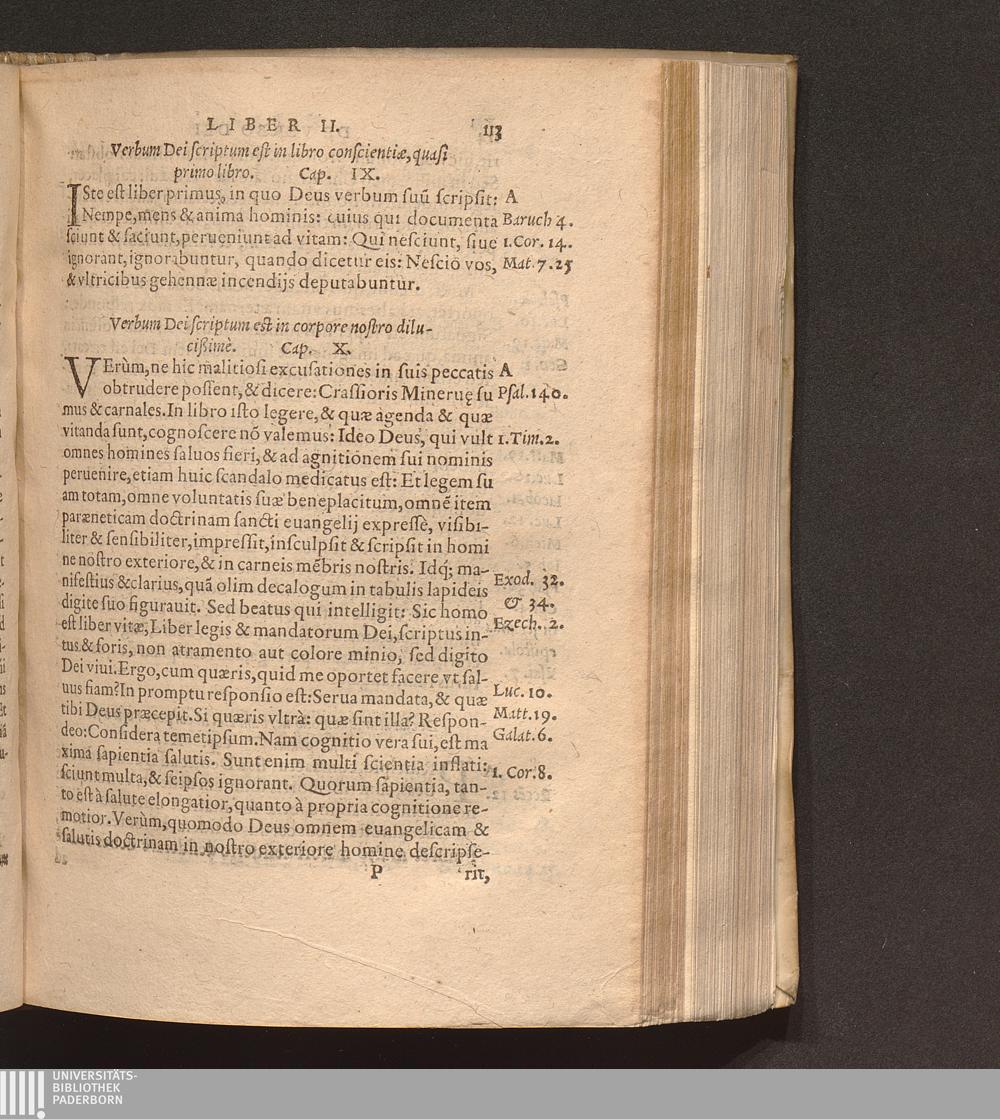 LIBER II. 113
Verbum Dei scriptum est in libro conscientiæ, quasi
primo libro. Cap. IX.
ISte est liber primus, in quo Deus verbum suū scripsit: A
Nempe, mens & anima hominis: cuius qui documenta Baruch 4.
sciunt & faciunt, perueniunt ad vitam: Qui nesciunt, siue 1. Cor. 14.
ignorant, ignorabuntur, quando dicetur eis: Nesciō vos, Mat. 7. 25
& vltricibus gehennæ incendijs deputabuntur.
Verbum Dei scriptum est in corpore nostro dilu-
cißimè. Cap. X.
VErùm, ne hic malitiosi excusationes in suis peccatis A
obtrudere possent, & dicere: Crassioris Mineruę su Psal. 140.
mus & carnales. In libro isto legere, & quæ agenda & quæ
vitanda sunt, cognoscere nō valemus: Ideo Deus, qui vult 1. Tim. 2.
omnes homines saluos fieri, & ad agnitionem sui nominis
peruenire, etiam huic scandalo medicatus est: Et legem su
am totam, omne voluntatis suæ beneplacitum, omnē item
paræneticam doctrinam sancti euangelij expressè, visibi-
liter & sensibiliter, impressit, insculpsit & scripsit in homi
ne nostro exteriore, & in carneis mēbris nostris. Idq́; ma-
nifestius & clarius, quā olim decalogum in tabulis lapideis Exod. 32.
digito suo figurauit. Sed beatus qui intelligit: Sic homo & 34.
est liber vitæ, Liber legis & mandatorum Dei, scriptus in- Ezech. 2.
tus & foris, non atramento aut colore minio, sed digito
Dei viui. Ergo, cum quæris, quid me oportet facere vt sal-
uus fiam? In promptu responsio est: Serua mandata, & quæ Luc. 10.
tibi Deus præcepit. Si quæris vltrà: quæ sint illa? Respon- Matt. 19.
deo: Considera temetipsum. Nam cognitio vera sui, est ma Galat. 6.
xima sapientia salutis. Sunt enim multi scientia inflati:
sciunt multa, & seipsos ignorant. Quorum sapientia, tan- 1. Cor. 8.
to est à salute elongatior, quanto à propria cognitione re-
motior. Verùm, quomodo Deus omnem euangelicam &
salutis doctrinam in nostro exteriore homine descripse-
P rit,
UNIVERSITÄTS-
BIBLIOTHEK
PADERBORN